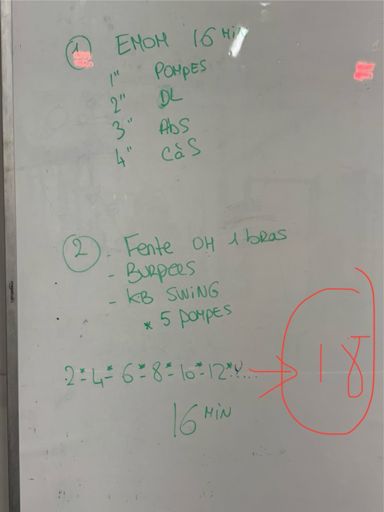 1 EMOM 16 MIN
1" POMPES
2" DL
3" ABS
4" CàS
2 - Fente OH 1 bras
- BURPEES
- KB SWING
* 5 POMPES
2*-4*-6*-8*-10*-12*... → 18
16 MIN